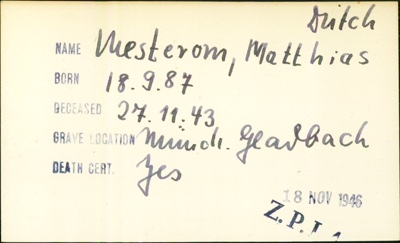 Dutch
NAME Mesterom, Matthias
BORN 18.9.87
DECEASED 27.11.43
GRAVE LOCATION Münch. Gladbach
DEATH CERT. Yes
18 NOV 1946